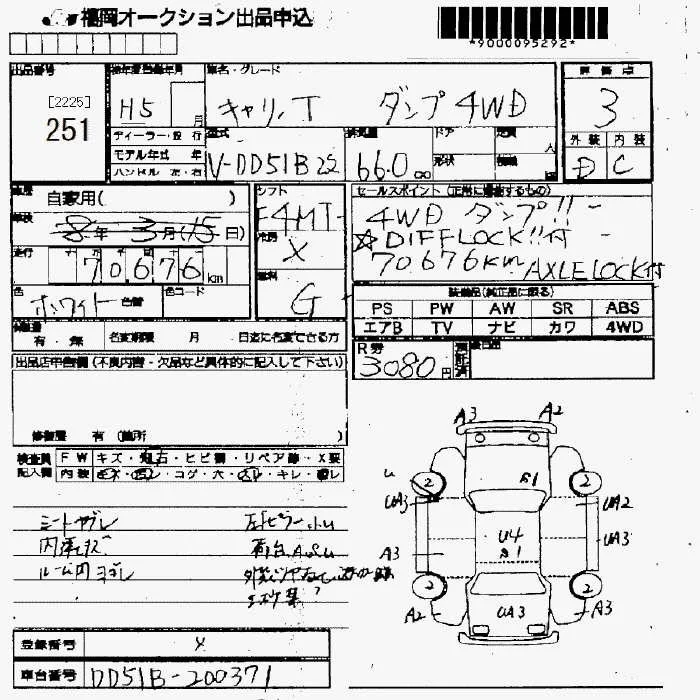 福岡オークション出品申込
*9000095292*
出品番号
[2225]
251
H5
月
車名・グレード
キャリィT ダンプ 4WD
評価点
3
外装 内装
D C
ディーラー・並行
モデル年式 年
ハンドル 左・右
型式
V-DD51B改
排気量
660 CC
ドア
形状
定員
人
車歴
自家用( )
車検
8年 3月(15日)
走行
70676 KM
色
ホワイト 色替
色コード
シフト
F4MT
冷房
X
燃料
G
セールスポイント (正常に機能するもの)
4WD ダンプ!!
☆DIFFLOCK!!付
70676km AXLELOCK付
装備品(純正品に限る)
PS PW AW SR ABS
エアB TV ナビ カワ 4WD
R券
3080円
有・無 名変期限 月 日迄に名変できる方
出品店申告欄(不良内容・欠品など具体的に記入して下さい)
修復歴 有 (箇所
検査員 F W キズ・飛石・ヒビ割・リペア跡・X要
記入欄 内装 キズ・コゲ・穴・スレ・キレ
シートヤブレ 左ピラー
内張キズ 荷台
A3 A2
U
2 A1 2
UA3 UA2
A3 U4 UA3
A1
2 2
A2 UA3 A3
登録番号 X
車台番号 DD51B-200371